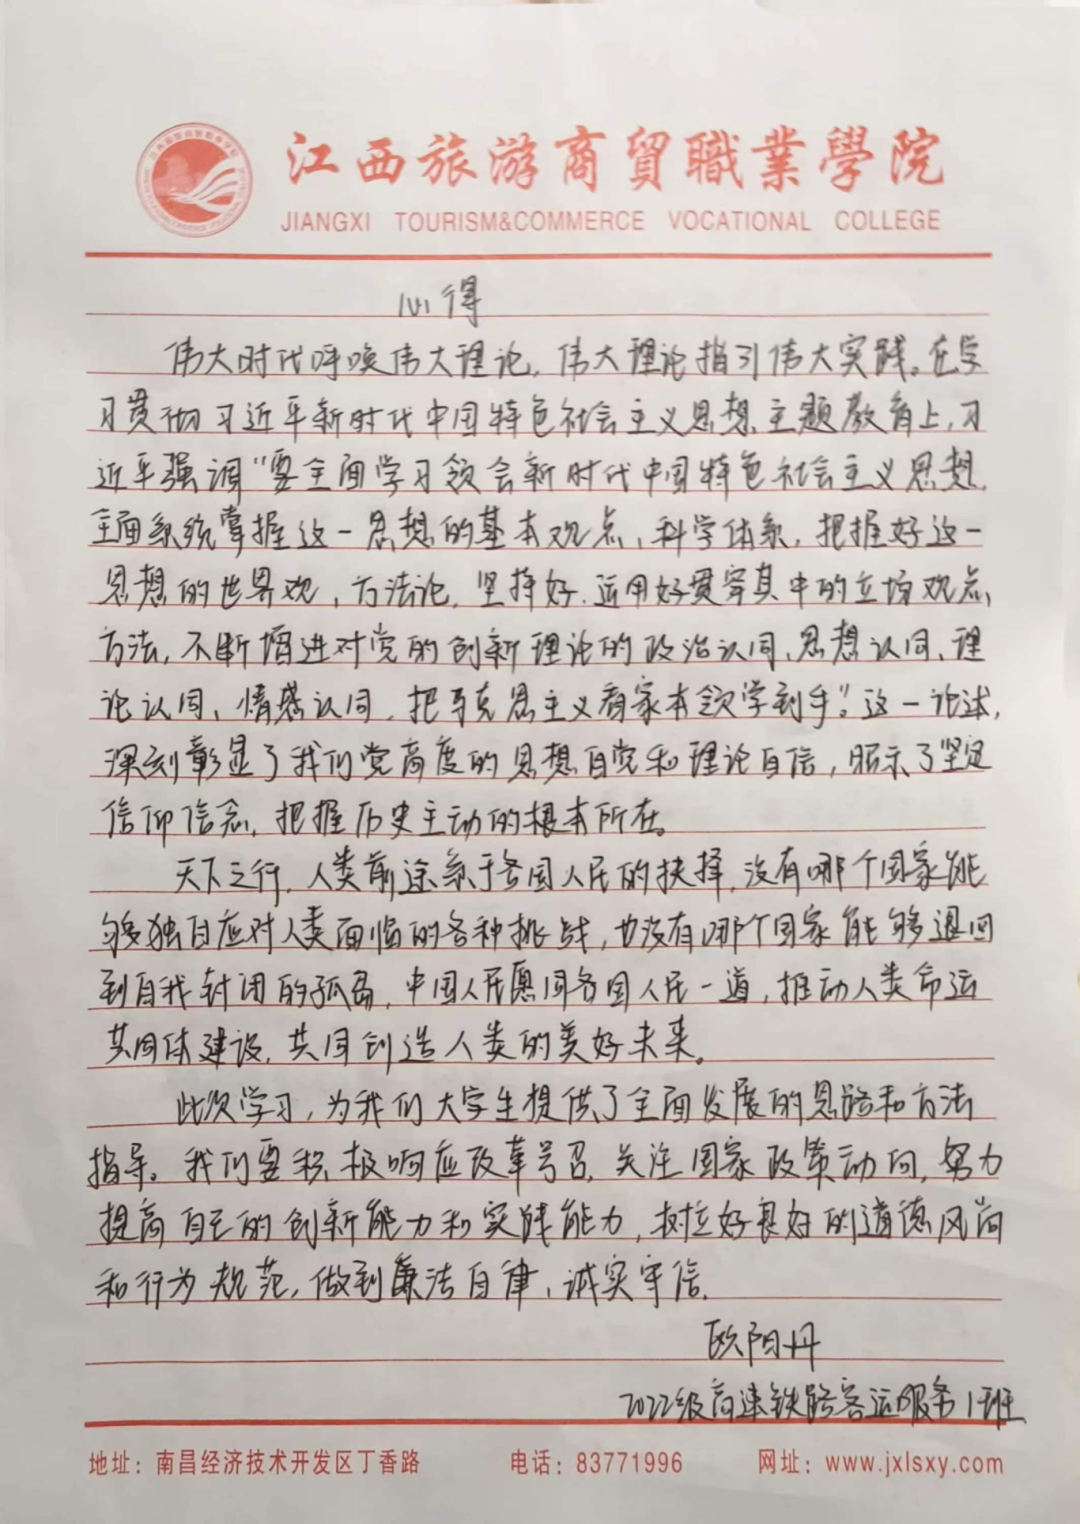 江西旅游商貿職業學院
JIANGXI TOURISM&COMMERCE VOCATIONAL COLLEGE
心得
伟大时代呼唤伟大理论，伟大理论指引伟大实践。在学
习贯彻习近平新时代中国特色社会主义思想主题教育上，习
近平强调“要全面学习领会新时代中国特色社会主义思想，
全面系统掌握这一思想的基本观点、科学体系，把握好这一
思想的世界观、方法论，坚持好、运用好贯穿其中的立场观点
方法，不断增进对党的创新理论的政治认同、思想认同、理
论认同、情感认同，把马克思主义看家本领学到手”。这一论述，
深刻彰显了我们党高度的思想自觉和理论自信，昭示了坚定
信仰信念，把握历史主动的根本所在。
天下之行，人类前途系于各国人民的抉择，没有哪个国家能
够独自应对人类面临的各种挑战，也没有哪个国家能够退回
到自我封闭的孤岛，中国人民愿同各国人民一道，推动人类命运
共同体建设，共同创造人类的美好未来。
此次学习，为我们大学生提供了全面发展的思路和方法
指导。我们要积极响应改革号召，关注国家政策动向，努力
提高自己的创新能力和实践能力，树立好良好的道德风尚
和行为规范，做到廉洁自律，诚实守信.
欧阳丹
2022级高速铁路客运服务1班
地址：南昌经济技术开发区丁香路 电话：83771996 网址：www.jxlsxy.com